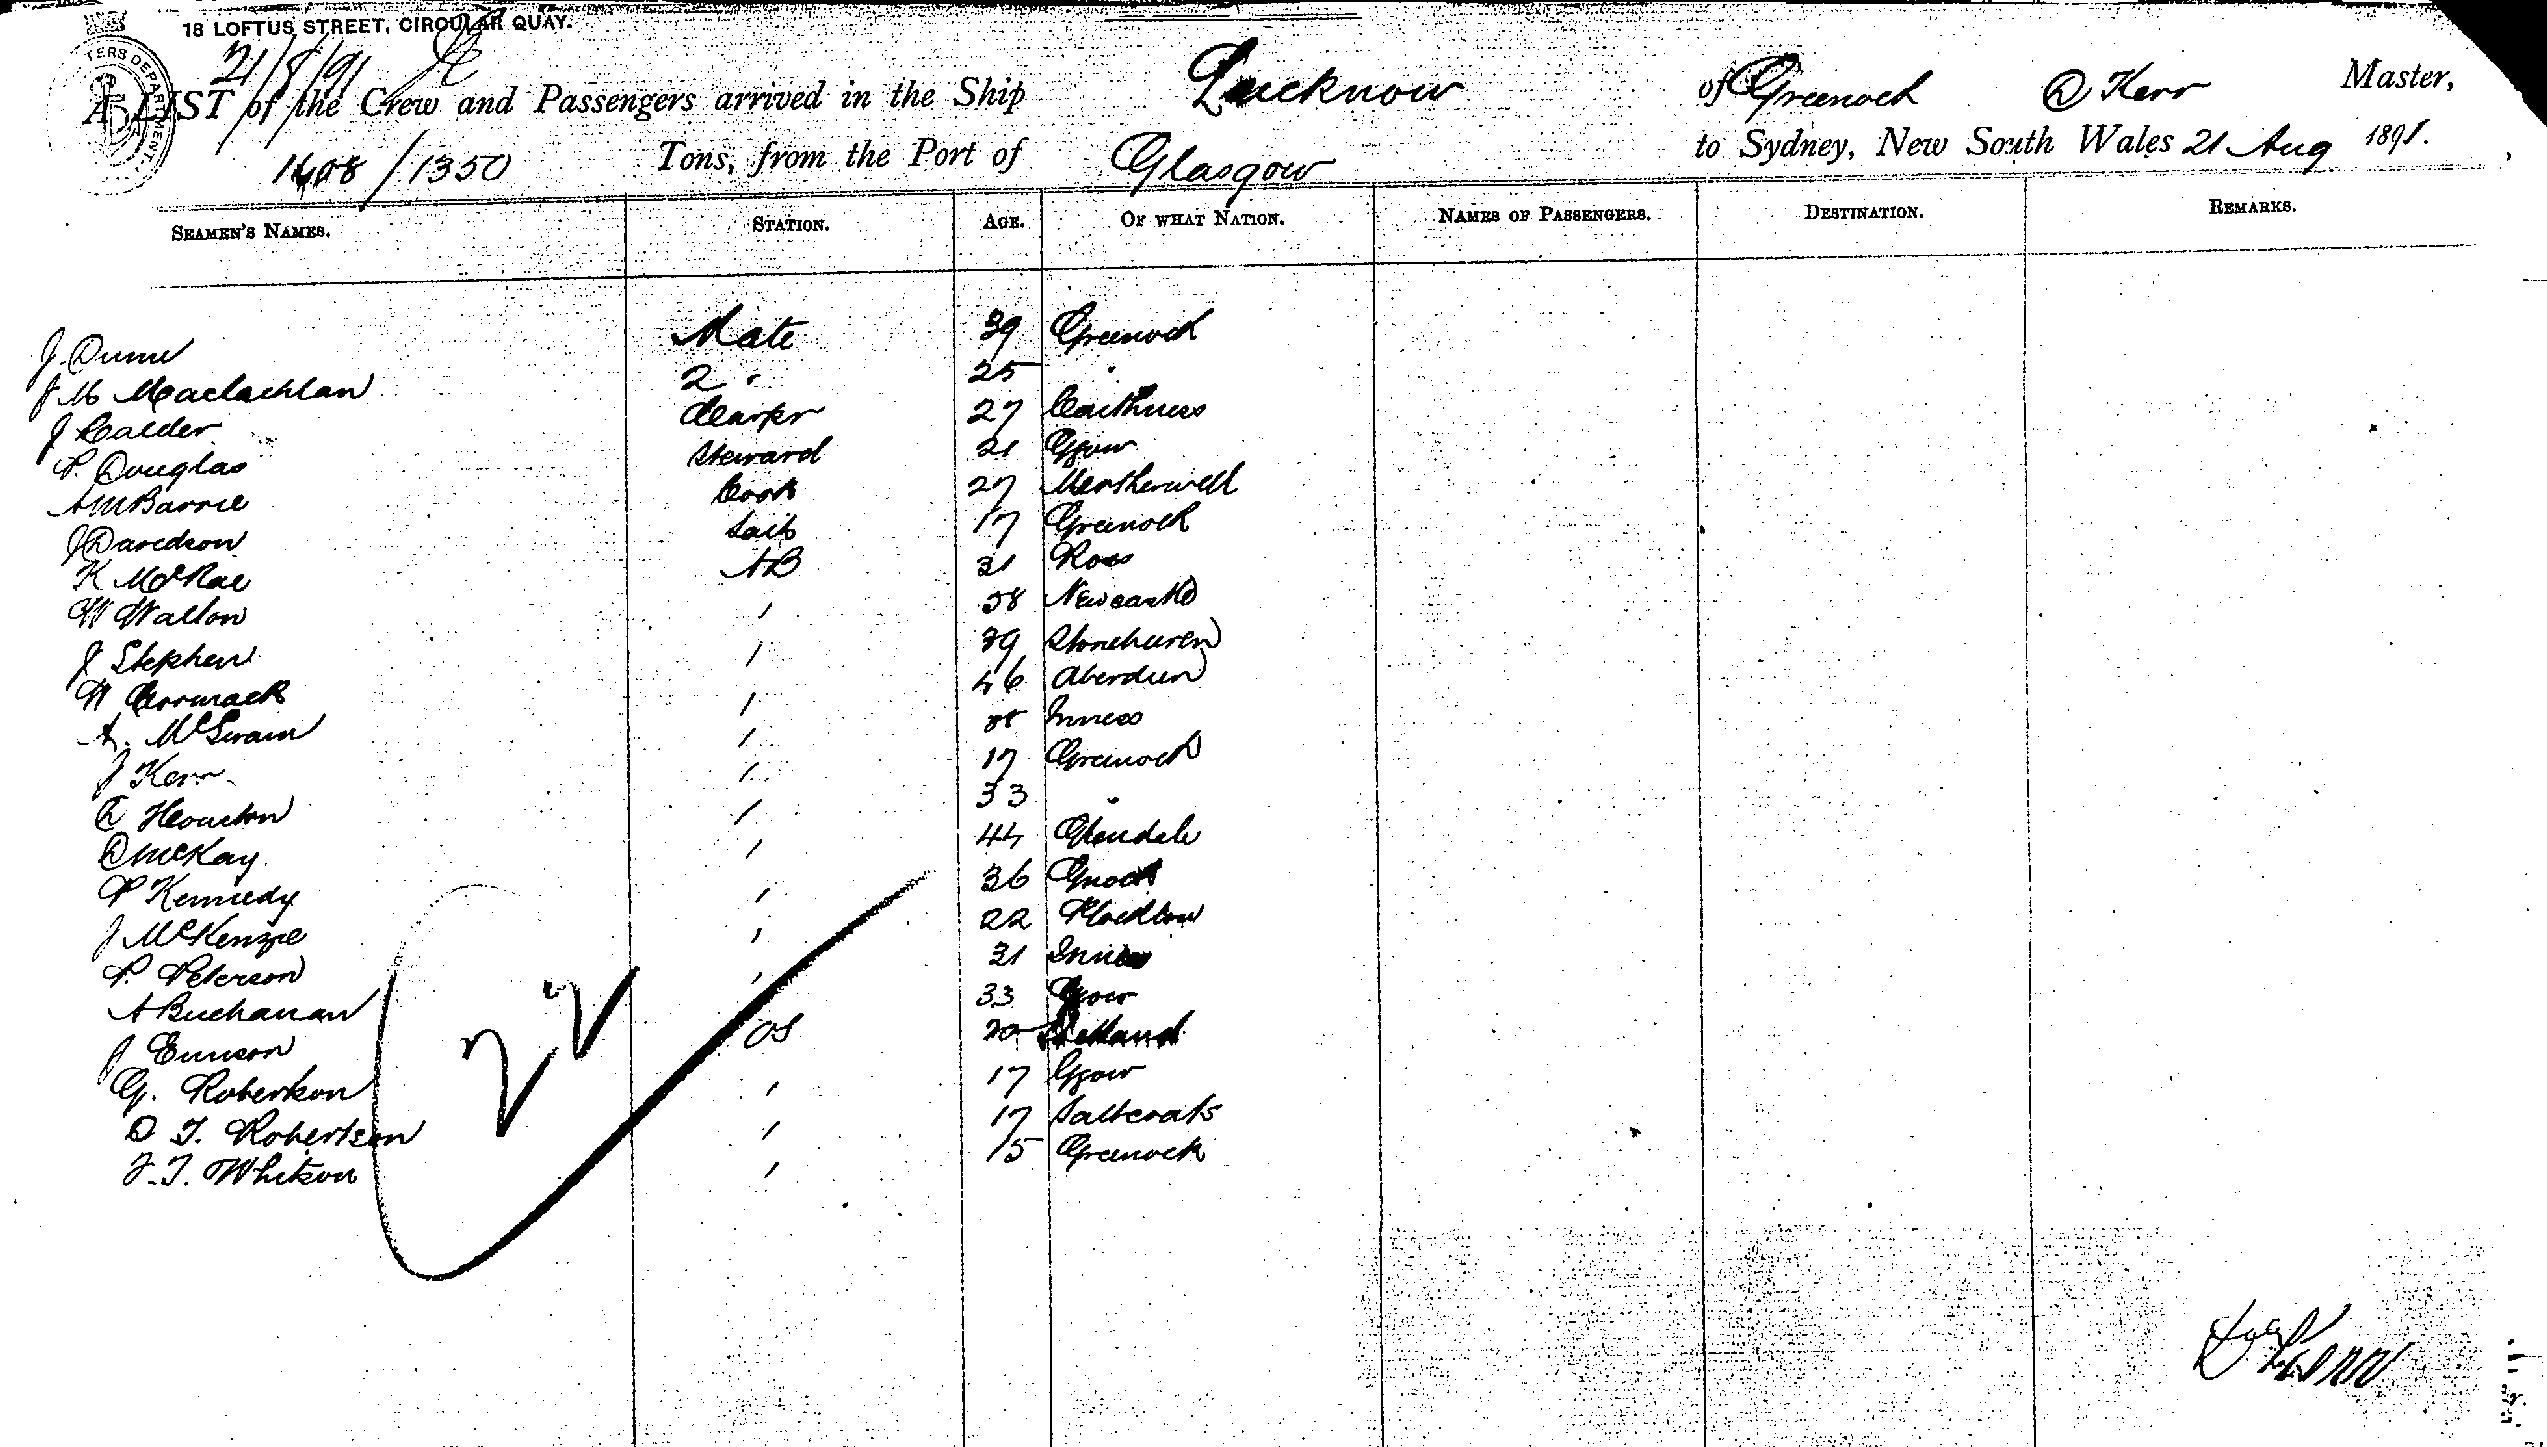 18 LOFTUS STREET, CIRCULAR QUAY.
TERS DEPARTMENT.
21/8/91
A LIST of the Crew and Passengers arrived in the Ship Lucknow of Greenock D Kerr Master,
1408 / 1350 Tons, from the Port of Glasgow to Sydney, New South Wales 21 Aug 1891.
SEAMEN'S NAMES. STATION. AGE. OF WHAT NATION. NAMES OF PASSENGERS. DESTINATION. REMARKS.
J. Dunn Mate 39 Greenock
J M Maclachlan 2 " 25 "
J Calder Carpr 27 Caithness
P. Douglas Steward 21 Ggow
A McBarrie Cook 27 Mertherwell
J Davidson Sail 17 Greenock
K McRae AB 31 Ross
W Walton " 58 Newcastle
J Stephen " 39 Stonehaven
W Cormack " 46 Aberdeen
A. McSwain " 38 Inness
J Kerr " 17 Greenock
Houston " 33 "
D McKay " 44 Glendale
P Kennedy " 36 Gnock
J McKenzie " 22 Plockton
P. Peterson " 31 Inness
A Buchanan " 33 Ggow
J Eunson OS 20 Shetland
G. Robertson " 17 Ggow
D T. Robertson " 17 Saltcoats
J. T. Whitson " 15 Greenock
22
D Kerr